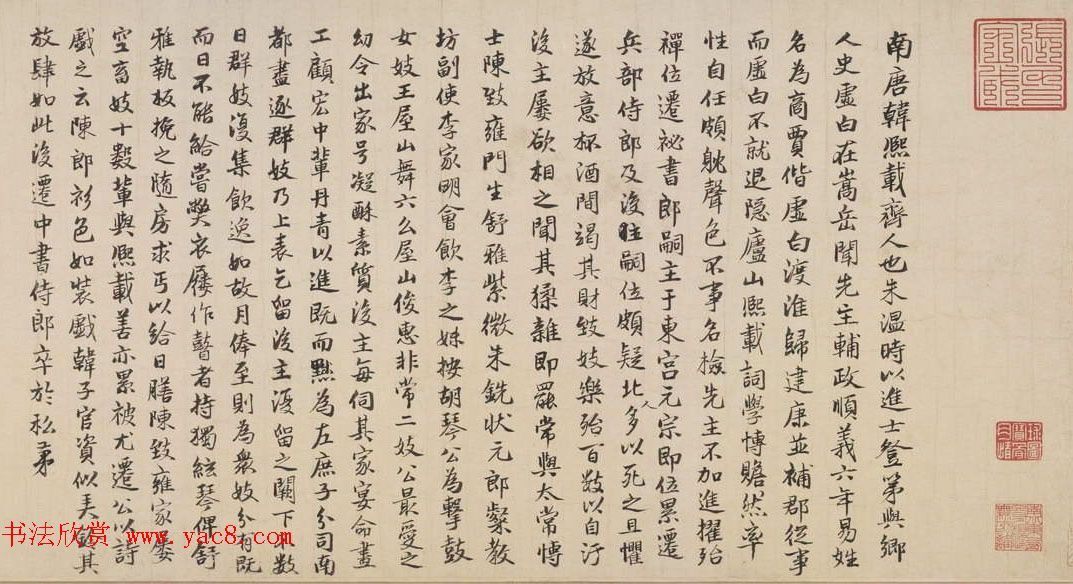 南唐韓熙載齊人也朱温時以進士登第與鄉
人史虛白在嵩岳聞先主輔政順義六年易姓
名為商賈偕虛白渡淮歸建康並補郡從事
而虛白不就退隱廬山熙載詞學博贍然率
性自任頗躭聲色不事名檢先主不加進擢殆
禪位遷祕書郎嗣主于東宮元宗即位累遷
兵部侍郎及後主嗣位頗疑北人多以死之且懼
遂放意杯酒間竭其財致妓樂殆百數以自汙
後主屢欲相之聞其猱雜即罷常與太常博
士陳致雍門生舒雅紫微朱銑狀元郎粲教
坊副使李家明會飲李之妹按胡琴公為擊鼓
女妓王屋山舞六么屋山俊惠非常二妓公最愛之
幼令出家号凝酥素質後主每伺其家宴命畫
工顧宏中輩丹青以進既而黜為左庶子分司南
都盡逐群妓乃上表乞留後主復留之闕下不數
日群妓復集飲逸如故月俸至則為衆妓分有既
而日不能給嘗獘衣屨作瞽者持獨絃琴俾舒
雅執板挽之隨房求丐以給日膳陳致雍家屡
空畜妓十數輩與熙載善亦累被尤遷公以詩
戲之云陳郎衫色如装戲韓子官資似美鈿其
放肆如此後遷中書侍郎卒於私第
书法欣赏 www.yac8.com